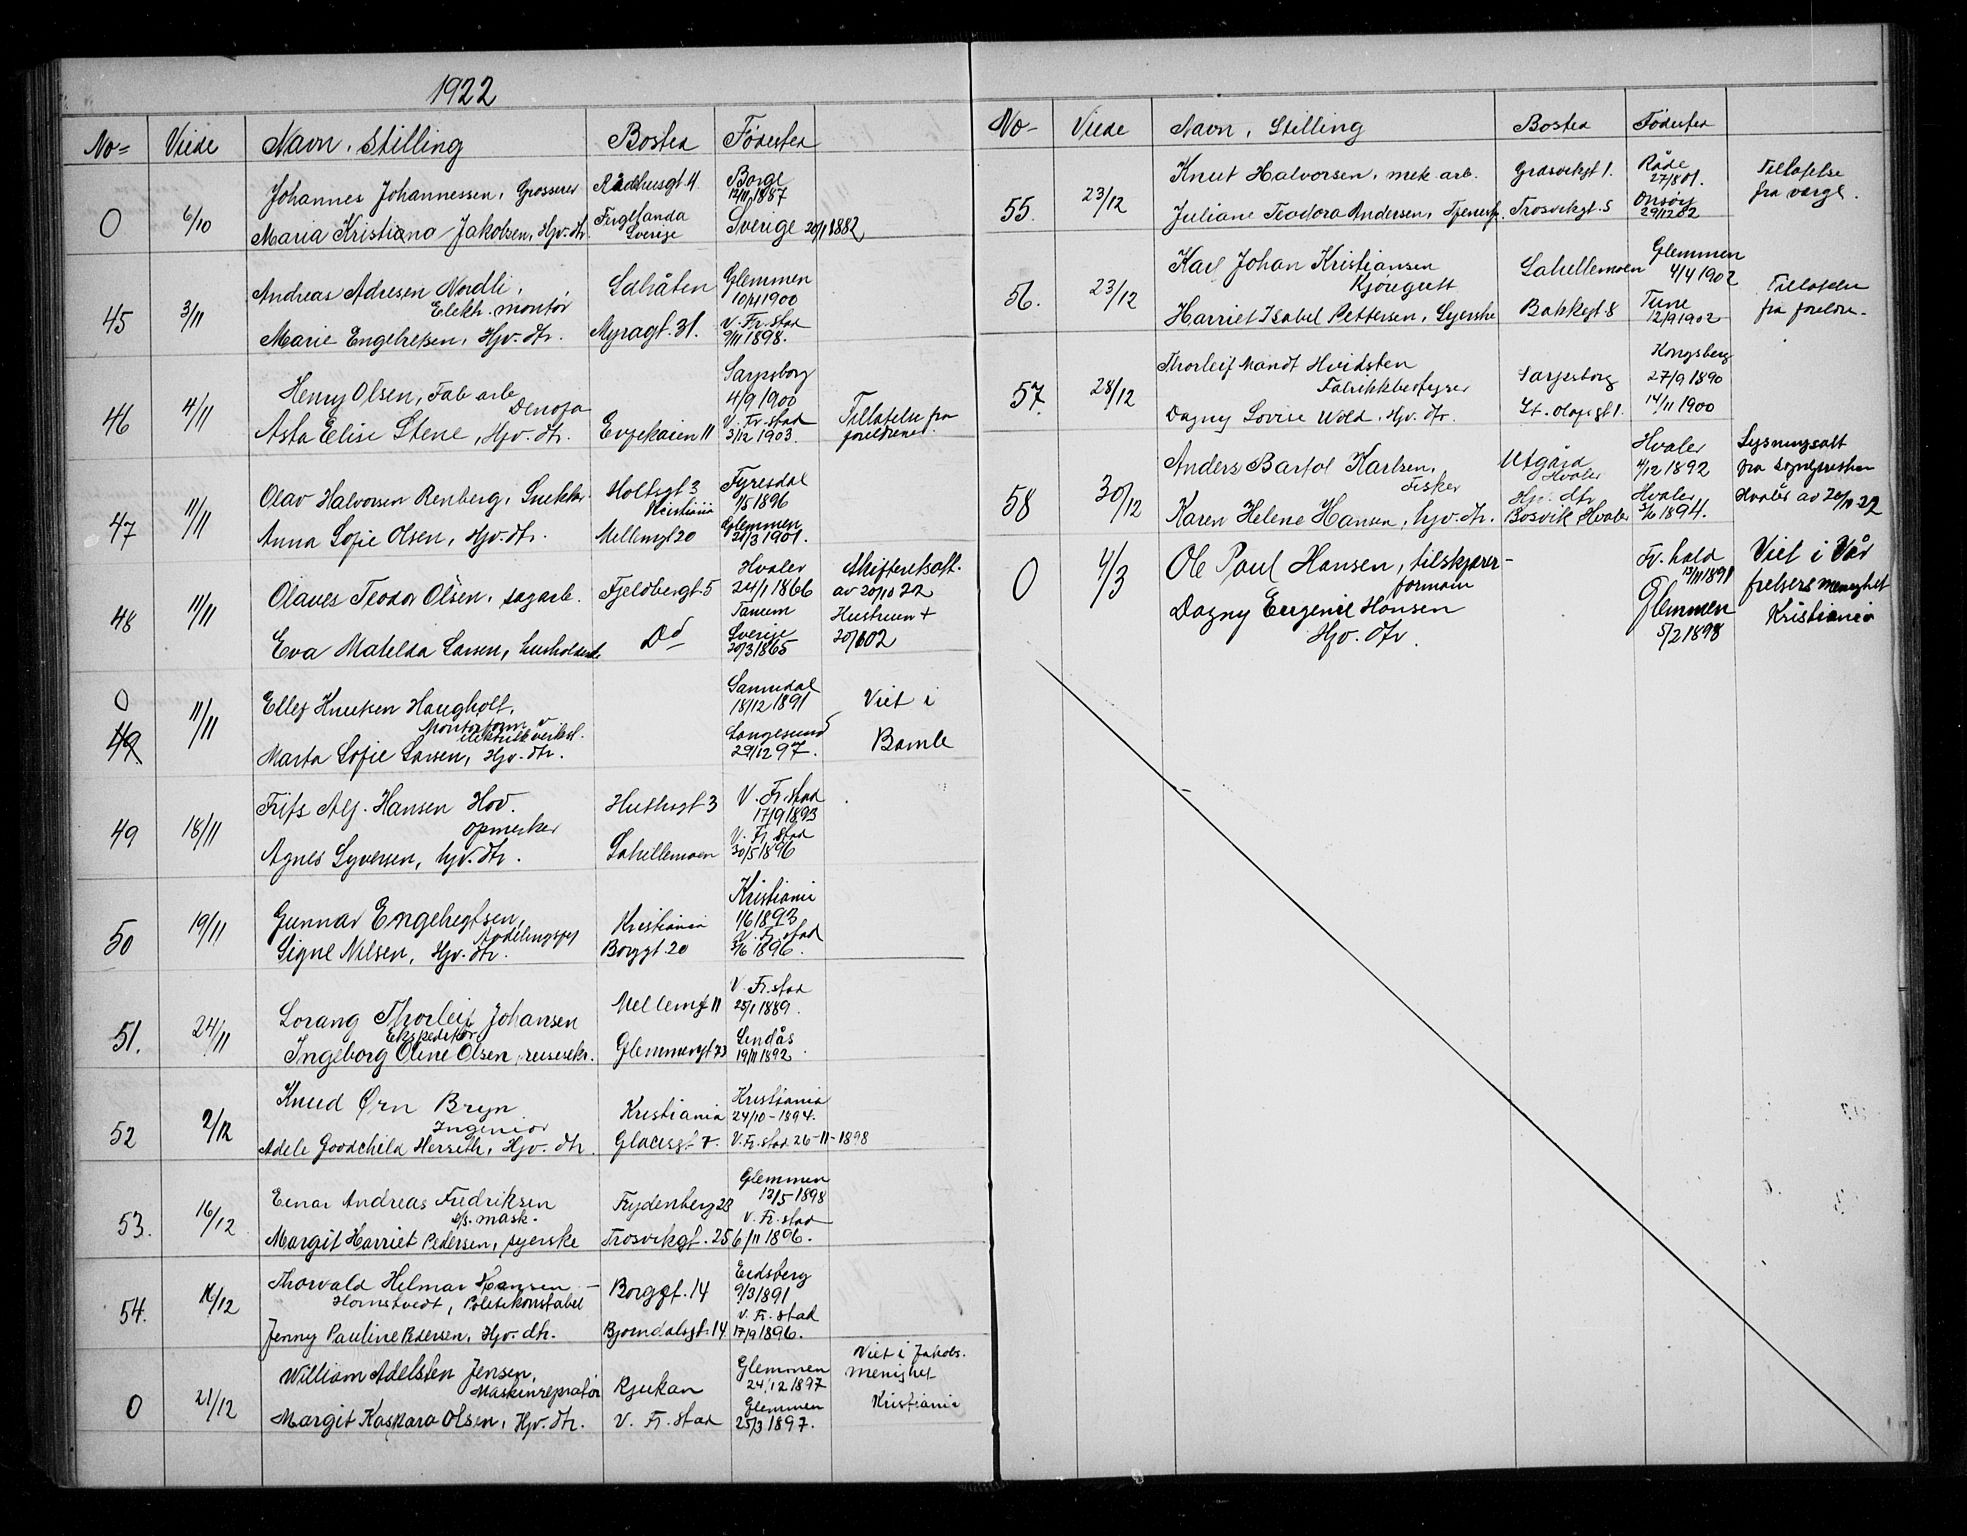 1922
No= Viede Navn. Stilling Bosted Fødested
Johannes Johannessen, Grosserer Rådhusgt 4 Borge
12/11 1887
0 6/10 Fuglanda
Maria Kristiana Jakobsen, Hjv. dtr. Sverige Sverige 20/1 1882
Andreas Adresen Nordli, Salsåten Glemmen
45 3/11 Elektr. montør 10/4 1900
Marie Engebretsen, Hjv. dtr. Myragt. 31. V. Fr. stad
9/11 1898.
Henry Olsen, Fab arb. Sarpsborg
46 4/11 Denofa 4/9 1900 Tillatelse fra
Asta Elise Stene, Hjv. dtr. Evjekaien 11 V. Fr. stad foreldrene.
3/12 1903.
Olav Halvorsen Renberg, Snekker Holtsgt 3 Fyresdal
47 11/11 Kristiania 1/5 1896
Anna Sofie Olsen, Hjv. dtr. Mellemgt 20 Glemmen
21/3 1901.
Olaves Teodor Olsen, sagarb. Fjeldbergt 5 Hvaler Skifteretsatt.
48 11/11 24/1 1866 av 20/10 22
Tanum Hustruen +
Eva Matelda Larsen, husholderske Do Sverige 20/6 02
20/3 1865
0 Ellef Knutsen Haugholt, Sannidal Viet i
11/11 Montørform. v 18/12 1891
49 elektrisk verksl. Langesund Bamle
Marta Sofie Larsen, Hjv. dtr. 29/12 97.
Frits Alf. Hansen Hov. Huthsgt 3 V. Fr. stad
49 18/11 opmerker 17/9 1893
Agnes Syversen, hjv. dtr. Lahellemoen V. Fr. stad
30/5 1896
Gunnar Engebretsen, Kristiania Kristiania
50 19/11 Avdelingssjef 1/6 1893
Signe Nilsen, Hjv. dtr. Borggt 20 V. Fr. stad
3/6 1896.
Lorang Thorleif Johansen Mellemgt 11 V. Fr. stad
51. 24/11 Ekspeditør 25/1 1889.
Ingeborg Oline Olsen, reisesekr. Glemmengt 73 Lindås
19/11 1892.
Knud Ørn Bryn Kristiania Kristiania
52 2/12 Ingeniør 24/10 - 1894.
Adele Goodchild Herseth, Hjv. dtr. Glacisgt 7. V. Fr. stad 26-11-1898
Einar Andreas Fredriksen Frydenberg 28 Glemmen
53. 16/12 d/s. mask. 13/5 1898
Margit Harriet Pedersen, syerske Trosvikgt. 25 V. Fr. stad
6/11 1896.
Thorvald Helmar Hansen - Borggt. 14 Eidsberg
54. 16/12 Hornstvedt, Politikonstabel 9/3 1891
Jenny Pauline Pedersen, Hjv. dtr. Bjørndalsgt. 14 V. Fr. stad
17/9 1896.
William Adelsten Jensen, Rjukan Glemmen Viet i Jakobs.
0 21/12 Maskinreparatør 24/12 1897 menighet
Margit Kaspara Olsen, Hjv. dtr. V. Fr. stad Glemmen Kristiania
25/3 1897.
No- Viede Navn, Stilling Bosted Fødested
Knut Halvorsen, mek arb. Gråsvikgt 1. Råde Tillatelse
55. 23/12 27/8 01. fra verge.
Juliane Teodora Andersen, Tjenerp. Trosvikgt. 5 Onsøy
29/12 02
Karl Johan Kristiansen Lahellemoen Glemmen
56. 23/12 4/4 1902 Tillatelse
Harriet Isabel Pettersen, Syerske Bakkegt. 8 Tune fra foreldre.
12/9 1902
Thorleif Mandt Hvidsten Sarpsborg Kongsberg
57. 28/12 Fabrikkbestyrer 27/9 1890
Dagny Lovise Wold, Hjv. dtr. St. Olafsgt 1. 14/11 1900
Anders Bartol Karlsen, Utgård Hvaler Lysningsatt
58 30/12 Fisker Hvaler 4/12 1892 fra Sognepresten
Hjv. dtr Hvaler Hvaler av 20/12 22
Karen Helene Hansen, hjv. dtr. Bosvik Hvaler 3/6 1894.
0 4/3 Ole Paul Hansen, tilskjærer- Fr. hald Viet i Vår
formann 13/11 1891 frelsers menighet
Dagny Eugenie Hansen Glemmen Kristiania
Hjv. dtr. 5/2 1898